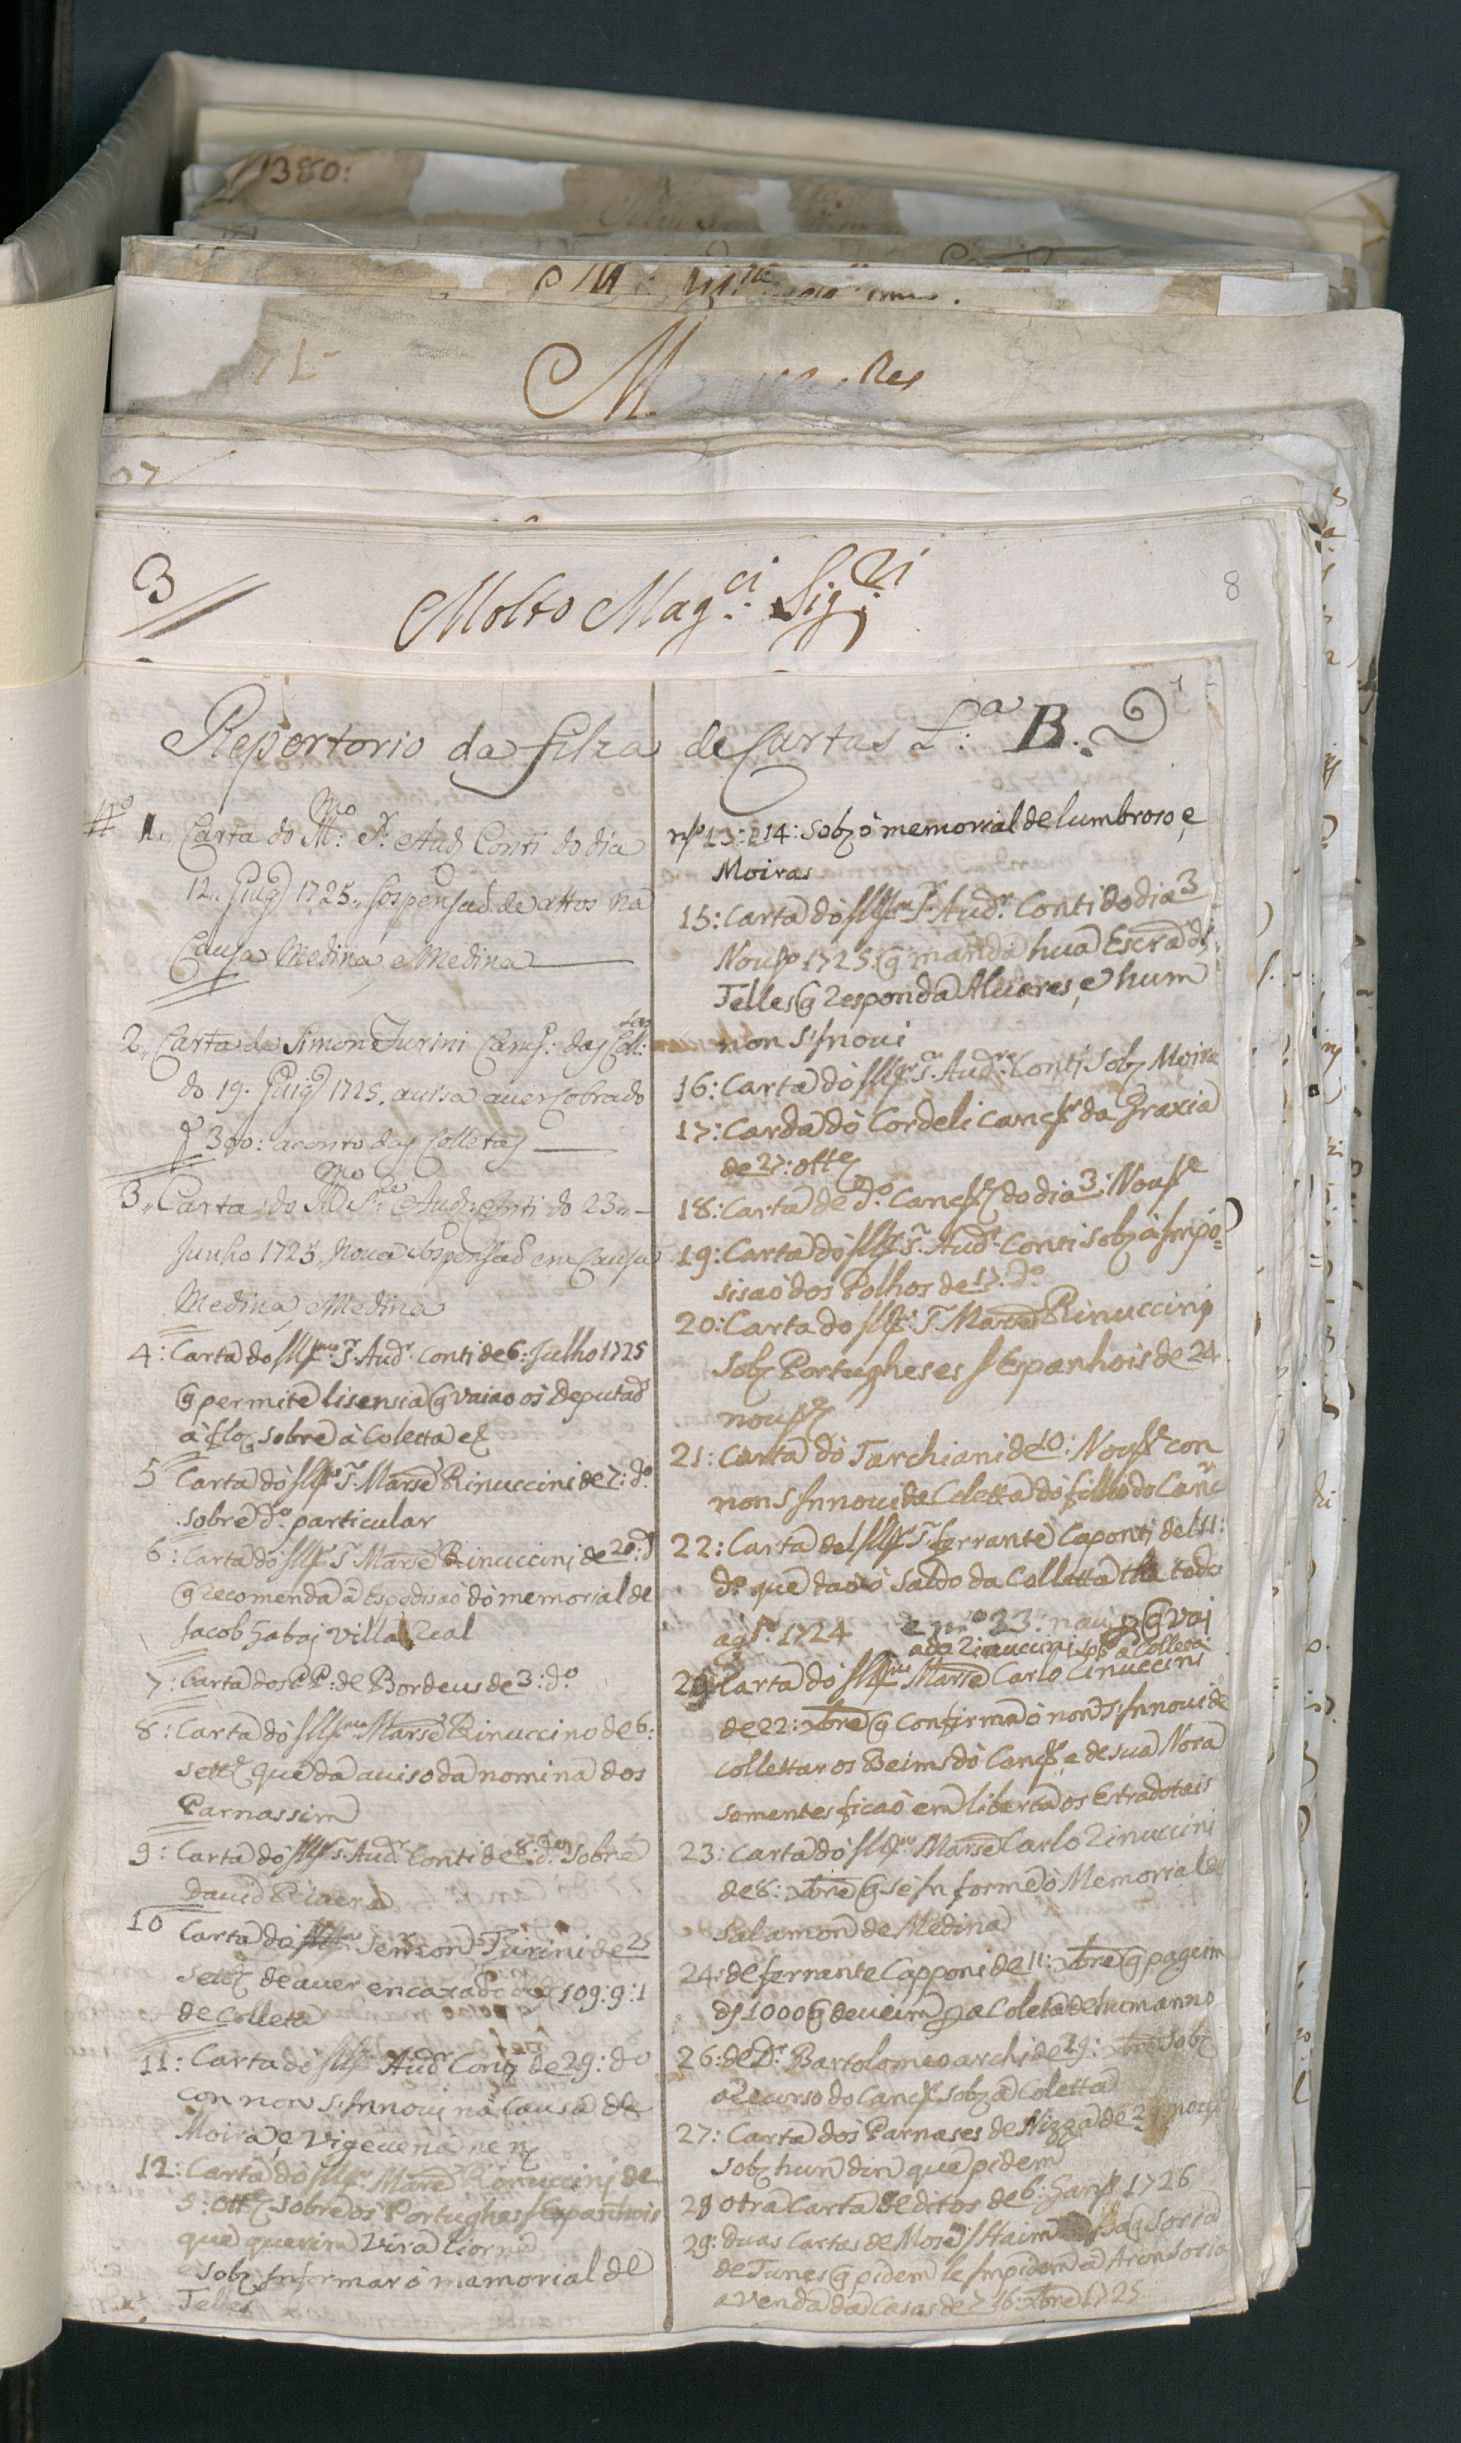 1380:
71-
M
Res
27
3
8
Molto Mag.ci Sig.ri
Repertorio da filza de Cartas L.a B.
N.o 1. Carta do Ill.mo S.r Aud Conti do dia
12. Giug 1725. sospensaõ de attos na
Causa Medina, e Medina
2. Carta de Simon Turini Canc.: das Col.:
do 19. Giug 1725. avisa aver Cobrado
300: a conto das Colletas
3. Carta do Ill.mo S.re Aud. Conti do 23..
Junho 1725. Nova Sospensaõ em Causa
Medina, e Medina
4: Carta do Ill.mo S.r Aud.r Conti de 6: Julho 1725
q permite lisensia q vaiao os Deputad
à flo.z sobre à Coletta e.z
5 Carta dó Ill.mo S.r Marse Rinuccini de 7: d.o
sobre d.o particular
6: Carta dó Ill.mo S.r Marse Rinuccini de 20: d
q recomenda à Espedisao dó memorial de
Jacob Sabaj Villa Real
7: Carta dos PP: de Bordeus de 3: d.o
8: Carta dó Ill.mo Marse Rinuccino de 6:
sett.e que da aviso da nomina dos
Parnassim
9: Carta dó Ill.mo S.r Aud.r Conti de 8: d.o sobre
David
10 Carta dó Simon Turini de 25
sett.e de aver encaxado 109:9:1
de Colleta
11: Carta dó Ill.mo Aud.r de 29: do
con non s'Innovi na Causa de
Moira, e Vigevena
12: Carta dó Ill.mo Marse Rinuccini de
5: ott.e sobre os Portughes Espanhois
que querim vir a Liorne
Sob.e Informar ó mamorial de
Telles
n.o 13: e 14: Sob.e ó memorial de lumbroso, e
Moiras
15: Carta dó Ill.mo S.r Aud.r Conti do dia 3
Nou.e 1725. q manda hua Escra de
Telles q Responda Alvares, e hum
non S'Inovi
16: Carta dó Ill.mo S.r Aud.re Conti Sob.e Moira
17: Carda dó Cordeli Canc.r da Graxia
de 27: ott.e
18: Carta de d.o Canc.e do dia 3: Nou.e
19: Carta dó Ill.mo S.r Aud.r Conti Sob.e à Impo=
sisaó dos Polhos de 17. d.o
20: Carta do Ill.mo S.r Marse Rinuccini
Sob.e Portugheses Espanhois de 24
nou.e
21: Carta dó Tarchiani de 10: Nou.e con
non S'Innovi da Coletta dó filho do Canc.r
22: Carta del Ill.mo S.r ferrante Caponi del 11:
d.o que dao ó saldo da Colletta tto todo
ag.to 1724
q vaj
Rinuccini sob a Colleta
Carta dó Ill.mo Marse Carlo Rinuccini
de 22: xbre q Confirma ó non S'Innovi de
collettar os Beims dó Canc.r e de sua Nora
somentes ficaó em liberta os Estradotais
23: Carta dó Ill.mo Marse Carlo Rinuccini
de 8: xbre q se Informe ó Memorial de
Salamon de Medina
24: de ferrante Capponi de 11: xbre q pagem
1000 q deveim p a Coleta de hum anno
26: de D.r Bartolomeo archi de 19: xbre Sob.e
o Recurso do Canc.r sob.e a Coletta
27: Carta dos Parnases de Nizza de 29 nou.e
Sob.e hum din que pidem
28 otra Carta de ditos de 6: Gan.o 1726
29: duas Cartas de Mose Haim Soria
de Tunes q pidem le Impidam a Aron Soria
a venda da Casas de 7 16: xbre 1725